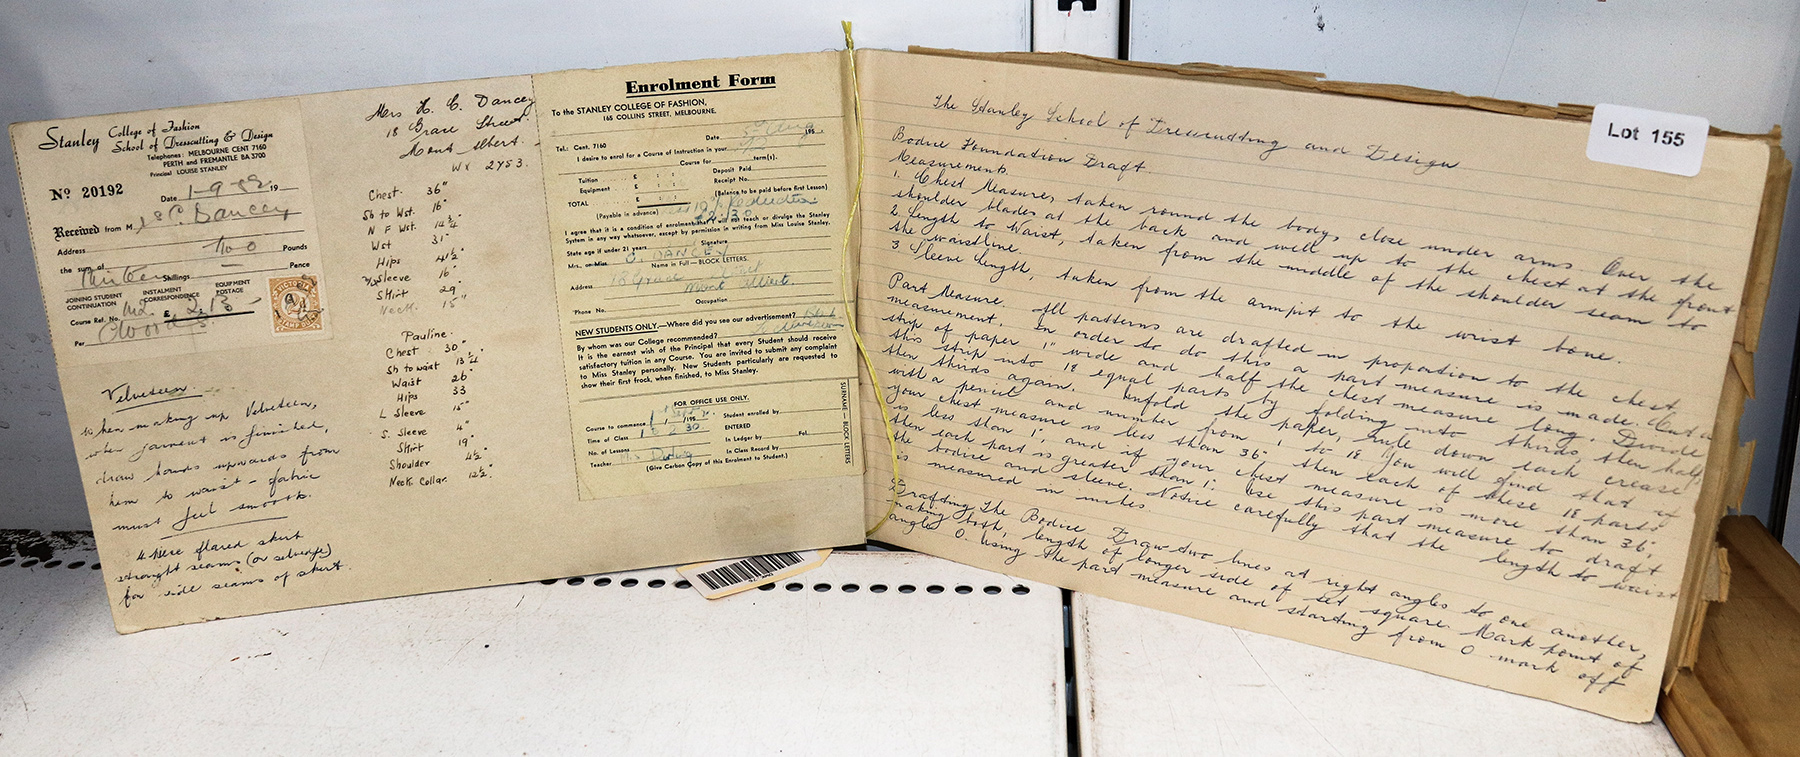 Stanley College of Fashion
School of Dresscutting & Design
Telephones: MELBOURNE CENT 7160
PERTH and FREMANTLE BA 3700
Principal LOUISE STANLEY
Nº 20192
Date 1-9-52 19
Received from M
C. Dancey
Address
the sum of Pounds
Thirteen Shillings Pence
JOINING STUDENT INSTALMENT EQUIPMENT
CONTINUATION CORRESPONDENCE POSTAGE
Course Ref. No. £ 2. 13
Per
VICTORIA
STAMP DUTY
Velveteen.
When making up Velveteen,
when garment is finished,
draw hands upwards from
hem to waist - fabric
must feel smooth.
4 piece flared skirt
straight seams (or selvedge)
for side seams of skirt.
Mrs H. C. Dancey
18 Grace Street
Mont Albert.
WX 2453.
Chest. 36"
Sh to Wst. 16"
N F Wst. 14¾"
Wst 31"
Hips 41½"
Sleeve 16"
Skirt 29"
Neck. 15"
Pauline.
Chest 30"
Sh to waist 13¼"
Waist 26"
Hips 33
L Sleeve 15"
S. Sleeve 4"
Skirt 19"
Shoulder 4½"
Neck Collar. 12½"
Enrolment Form
To the STANLEY COLLEGE OF FASHION,
165 COLLINS STREET, MELBOURNE.
Tel.: Cent. 7160 Date 195
I desire to enrol for a Course of Instruction in your
Course for term(s).
Tuition £ : : Deposit Paid
Equipment £ : : Receipt No.
TOTAL £ : : (Balance to be paid before first Lesson)
(Payable in advance) less 10% Reduction
£2.13.0
I agree that it is a condition of enrolment that I will not teach or divulge the Stanley
System in any way whatsoever, except by permission in writing from Miss Louise Stanley.
State age if under 21 years Signature
Mrs. or Miss C. DANCEY
Name in Full — BLOCK LETTERS.
Address 18 Grace Street
Mont Albert.
Occupation
'Phone No.
NEW STUDENTS ONLY.—Where did you see our advertisement?
By whom was our College recommended?
It is the earnest wish of the Principal that every Student should receive
satisfactory tuition in any Course. You are invited to submit any complaint
to Miss Stanley personally. New Students particularly are requested to
show their first frock, when finished, to Miss Stanley.
FOR OFFICE USE ONLY.
Course to commence 1 / Sept / 195 Student enrolled by
Time of Class ENTERED
No. of Lessons In Ledger by Fol.
Teacher In Class Record by
(Give Carbon Copy of this Enrolment to Student.)
SURNAME — BLOCK LETTERS
The Stanley School of Dresscutting and Design
Bodice Foundation Draft
Measurements.
1. Chest Measure, taken round the body, close under arms. Over the
shoulder blades at the back and well up to the chest at the front
2. Length to Waist, taken from the middle of the shoulder seam to
the waistline.
3 Sleeve Length, taken from the armpit to the wrist bone.
Part Measure. All patterns are drafted in proportion to the chest
measurement. In order to do this a part measure is made. Cut a
strip of paper 1" wide and half the chest measure long. Divide
this strip into 18 equal parts by folding into thirds, then half,
then thirds again. Unfold the paper, rule down each crease
with a pencil and number from 1 to 18 You will find that if
your chest measure is less than 36" then each of these 18 parts
is less than 1", and if your chest measure is more than 36",
then each part is greater than 1". Use this part measure to draft
the bodice and sleeve. Notice carefully that the length to waist
is measured in inches.
Drafting The Bodice Draw two lines at right angles to one another,
making both, length of longer side of set square. Mark point of
angle O. Using the part measure and starting from O mark off
Lot 155